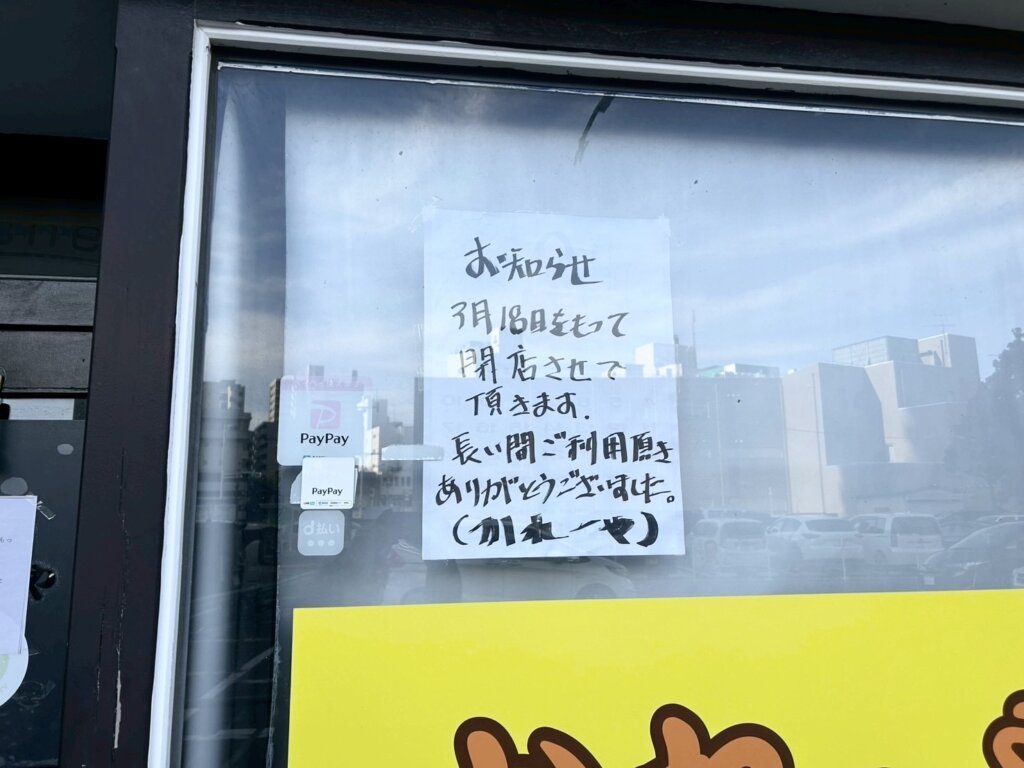 お知らせ
3月18日をもって
閉店させて
頂きます.
長い間ご利用頂き
ありがとうございました。
(かれーや)
PayPay
PayPay
d払い